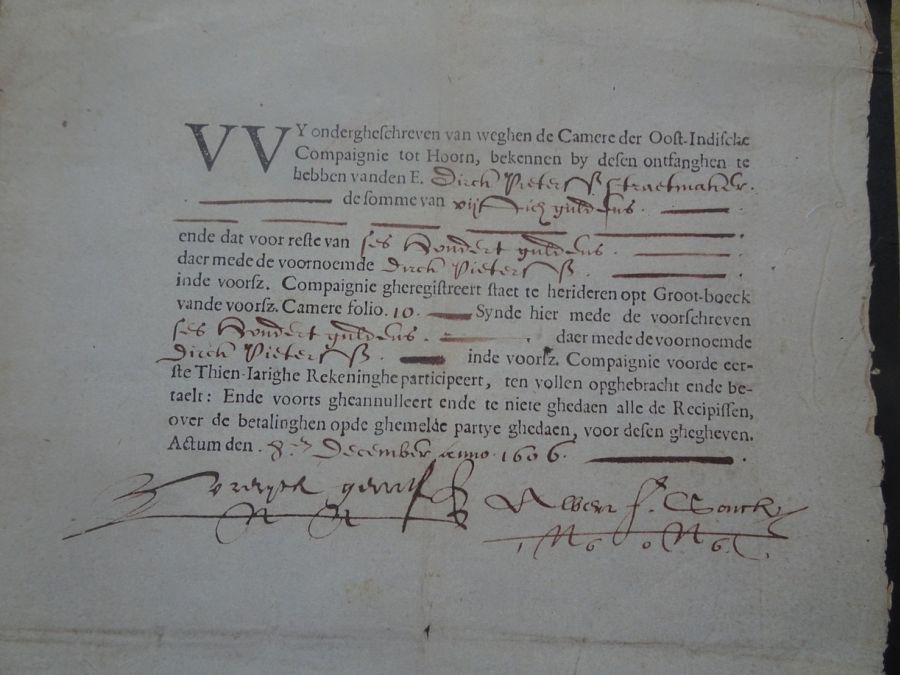 VVY ondergheschreven van weghen de Camere der Oost-Indische
Compaignie tot Hoorn, bekennen by desen ontfanghen te
hebben vanden E. Dirck Pieterss Straetmaker.
de somme van vijftich guldens.
ende dat voor reste van ses hondert guldens.
daer mede de voornoemde Dirck Pieterss.
inde voorsz. Compaignie gheregistreert staet te herideren opt Groot-boeck
vande voorsz. Camere folio. 10. Synde hier mede de voorschreven
ses hondert guldens. daer mede de voornoemde
Dirck Pieterss. inde voorsz. Compaignie voorde eer-
ste Thien-Iarighe Rekeninghe participeert, ten vollen opghebracht ende be-
taelt: Ende voorts gheannulleert ende te niete ghedaen alle de Recipissen,
over de betalinghen opde ghemelde partye ghedaen, voor desen ghegheven.
Actum den. 8. December anno. 1606.